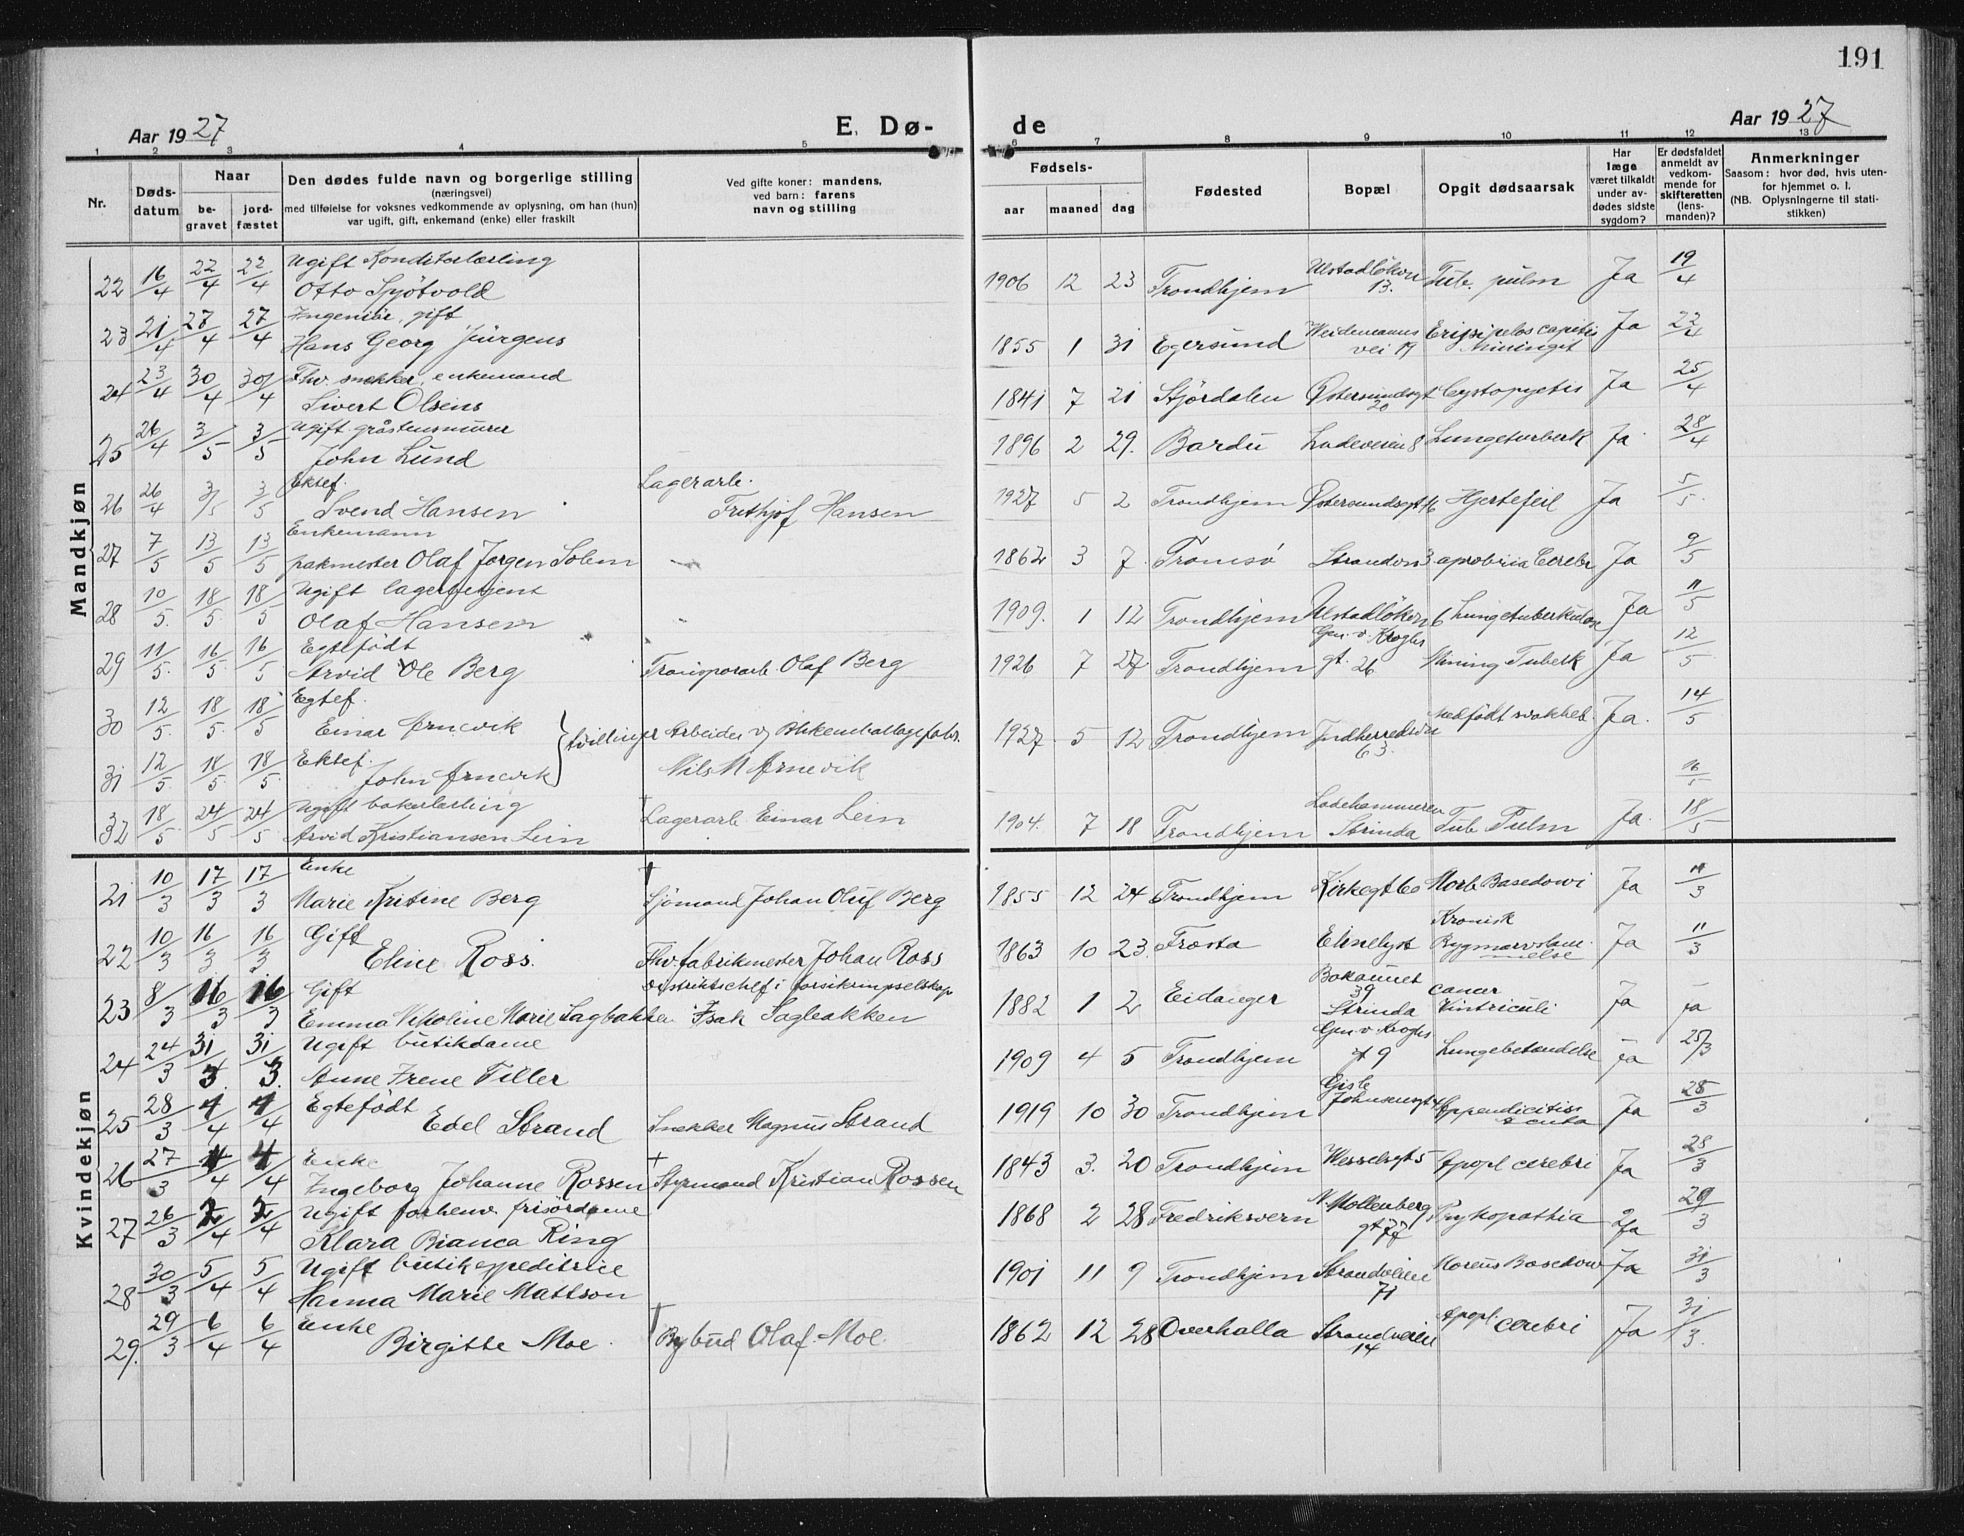 191
Aar 1927
E. Dø-
de
Aar 1927
1 2 3 4 5 6 7 8 9 10 11 12 13
Nr.
Døds-
datum
Naar
be-
gravet
jord-
fæstet
Den dødes fulde navn og borgerlige stilling
(næringsvei)
med tilføielse for voksnes vedkommende av oplysning, om han (hun)
var ugift, gift, enkemand (enke) eller fraskilt
Ved gifte koner: mandens,
ved barn: farens
navn og stilling
Fødsels-
aar
maaned
dag
Fødested
Bopæl
Opgit dødsaarsak
Har
læge
været tilkaldt
under av-
dødes sidste
sygdom?
Er dødsfaldet
anmeldt av
vedkom-
mende for
skifteretten
(lens-
manden)?
Anmerkninger
Saasom: hvor død, hvis uten-
for hjemmet o. l.
(NB. Oplysningerne til stati-
stikken)
Mandkjøn
Ugift Konditorlærling
22 16/4 22/4 22/4 Otto Sjøtvold 1906 12 23 Trondhjem Ulstadløken 13. Tub. pulm Ja 19/4
Ingeniør, gift
23 21/4 27/4 27/4 Hans Georg Jürgens 1855 1 31 Egersund Weidemanns vei 19 Erisipelas capitis Ja 23/4
Fhv. snekker, enkemand
24 23/4 30/4 30/4 Sivert Olsens 1841 7 21 Stjørdalen Østersundsgt 20 Cystopyetis Ja 25/4
Ugift gråstensmurer
25 26/4 3/5 3/5 John Lund 1896 2 29. Bardu Ladeveien 8 Lungetuberk Ja 28/4
Ektef. Lagerarb.
26 26/4 3/5 3/5 Svend Hansen Frithjof Hansen 1927 5 2 Trondhjem Østersundsgt 16 Hjertefeil Ja 5/5
Enkemann
27 7/5 13/5 13/5 pakmester Olaf Jørgen Solem 1862 3 7 Tromsø Strandvn 3 Cerebr Ja 9/5
Ugift lagerbetjent
28 10/5 18/5 18/5 Olaf Hansen 1909. 1 12 Trondhjem Ulstadløken 6 Lungetuberkulose Ja 11/5
Egtefødt
29 11/5 16/5 16/5 Arvid Ole Berg Transporarb Olaf Berg 1926 7 27 Trondhjem Gen. v. Kroghs gt. 26 Mining Tuberk Ja 12/5
Egtef.
30 12/5 18/5 18/5 Einar Arnevik } tvillinger Arbeider v/ Blikemballagefabr. 1927 5 12 Trondhjem Indherredsvn 63 Medfødt svakhet. Ja. 14/5
Ektef.
31 12/5 18/5 18/5 John Arnevik Nils M Arnevik 16/5
Ugift bakerlærling
32 18/5 24/5 24/5 Arvid Kristiansen Lein Lagerarb. Einar Lein 1904. 7 18 Trondhjem Ladehammeren Strinda Tub Pulm Ja. 18/5
Kvindekjøn
Enke †
21 10/3 17/3 17/3 Marie Kristine Berg Sjømand Johan Oluf Berg 1855 12 24 Trondhjem Kirkegt 60 Morb Basedowi Ja 11/3
Gift
22 10/3 16/3 16/3 Eline Ross. Fhv. fabrikmester Johan Ross 1863 10 23. Frosta Elinelyst Kronisk Rygmarvslammelse Ja 11/3
Gift distriktschef i forsikringsselskap
23 8/3 16/3 16/3 Emma Nikoline Marie Sagbakken Isak Sagbakken 1882 1 2 Eidanger Bakaunet 39 Strinda cancer Vintriculi Ja ja
Ugift butikdame
24 24/3 31/3 31/3 Anne Irene Tiller 1909 4 5 Trondhjem Gen. v. Kroghs gt 9 Lungebetændelse ja 25/3
Egtefødt
25 28/3 4/4 4/4 Edel Strand Snekker Magnus Strand 1919 10 30 Trondhjem Gisle Johnsensgt 4 Appendicitis acuta Ja 28/3
Enke †
26 27/3 4/4 4/4 Ingeborg Johanne Rossen Styrmand Kristian Rossen 1843 3. 20 Trondhjem Wesselsgt 5 Apopl cerebri Ja 28/3
Ugift forhenv. frisørdame
27 26/3 2/4 2/4 Klara Bianca Ring 1868 2 28 Fredriksvern N. Møllenberg gt 77 Psykopathia Ja 29/3
Ugift butikexpeditrice
28 30/3 5/4 5/4 Hanna Marie Mattson 1901 11 9 Trondhjem Strandveien 71 Morbus Basedow Ja 31/3
Enke †
29. 29/3 6/4 6/4 Birgitte Moe. Bybud Olaf Moe. 1862 12 28 Overhalla Strandveien 14 Apopl cerebri Ja 31/3.